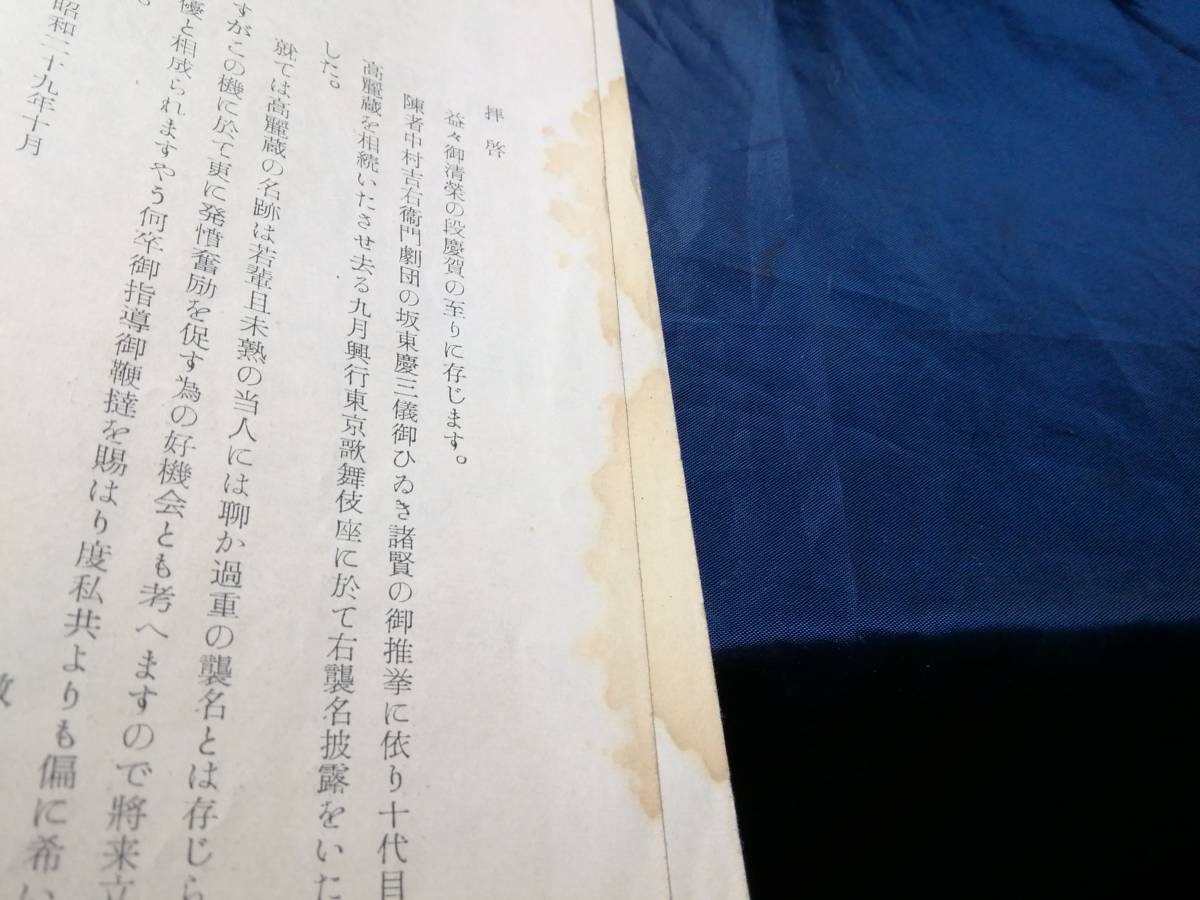 拝啓
益々御清榮の段慶賀の至りに存じます。
陳者中村吉右衞門劇団の坂東慶三儀御ひゐき諸賢の御推挙に依り十代目
高麗蔵を相続いたさせ去る九月興行東京歌舞伎座に於て右襲名披露をいた
した。
就ては高麗蔵の名跡は若輩且未熟の当人には聊か過重の襲名とは存じら
すがこの機に於て更に発憤奮励を促す為の好機会とも考へますので將来立
優と相成られますやう何卒御指導御鞭撻を賜はり度私共よりも偏に希い
昭和二十九年十月
敬